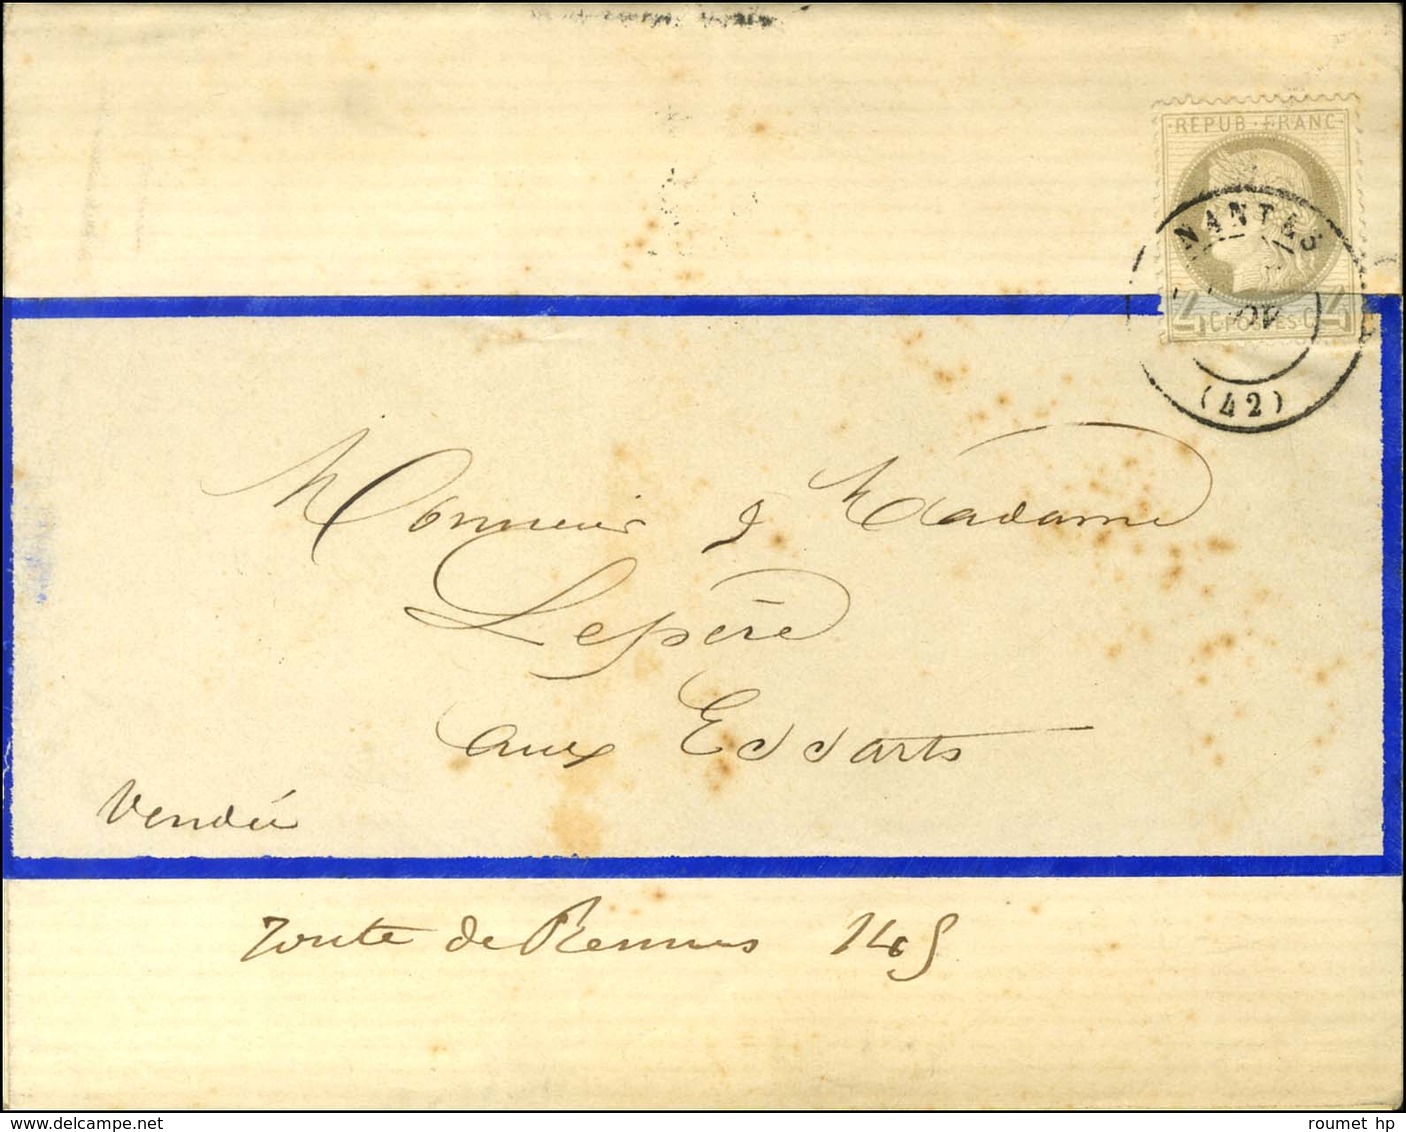 REPUB·FRANC
NANTES
4 C·POSTES·C 4
(42)
Monsieur & Madame
Lepère
aux Essarts
Vendée
route de Rennes 145
roumet hp